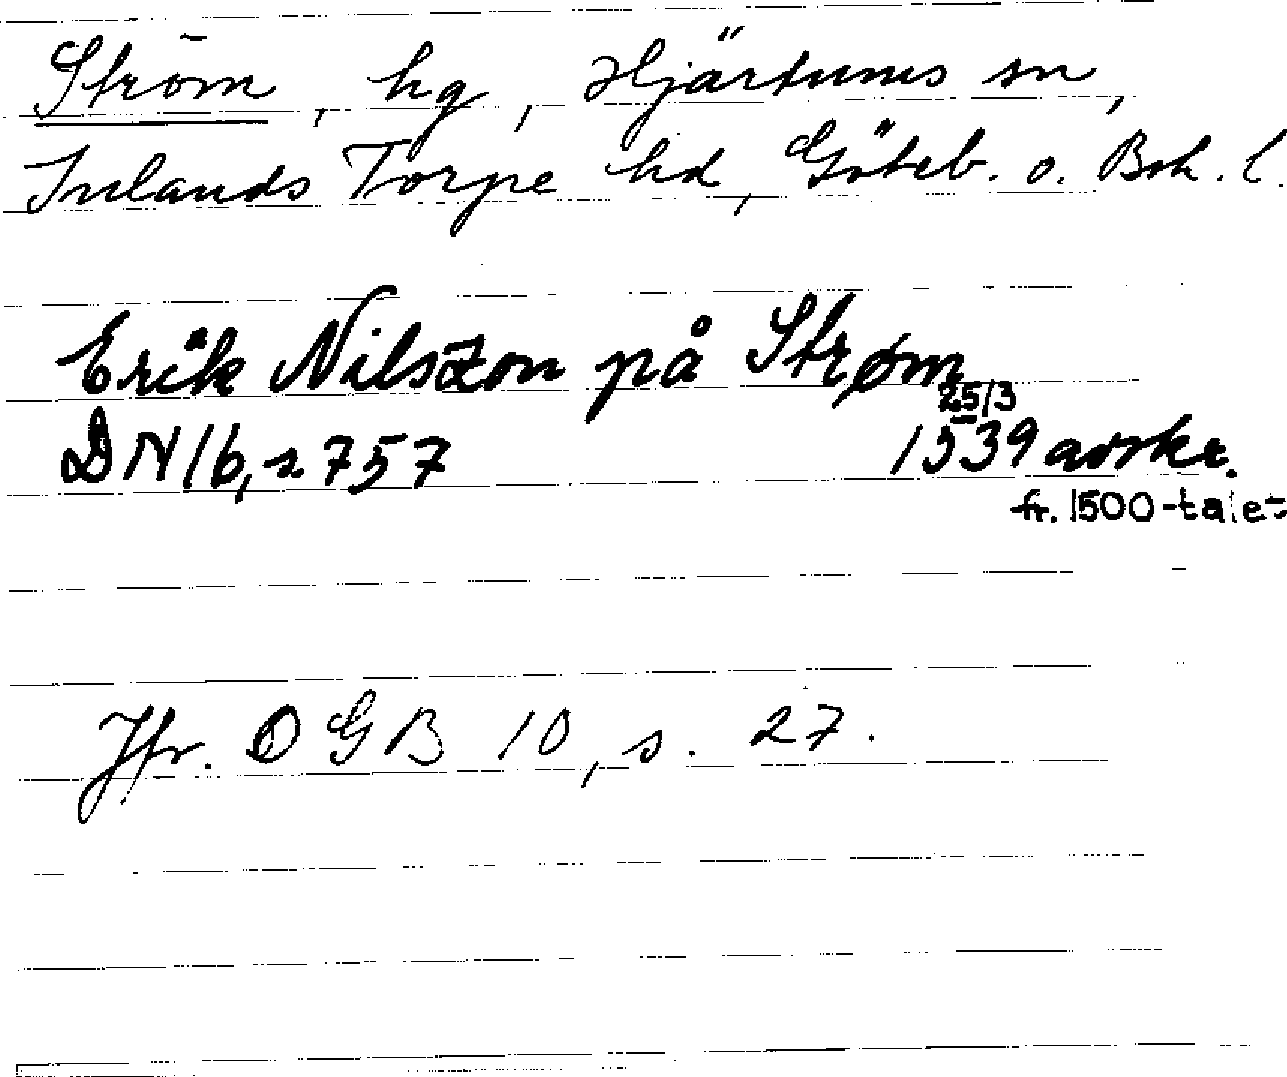 Ström, hg, Hjärtums sn,
Inlands Torpe hd, Göteb. o. Boh. l.
Erik Nilszon på Strøm
25/3
DN 16, s 757 1539 avskr.
fr. 1500-talet
Jfr. OGB 10, s. 27.